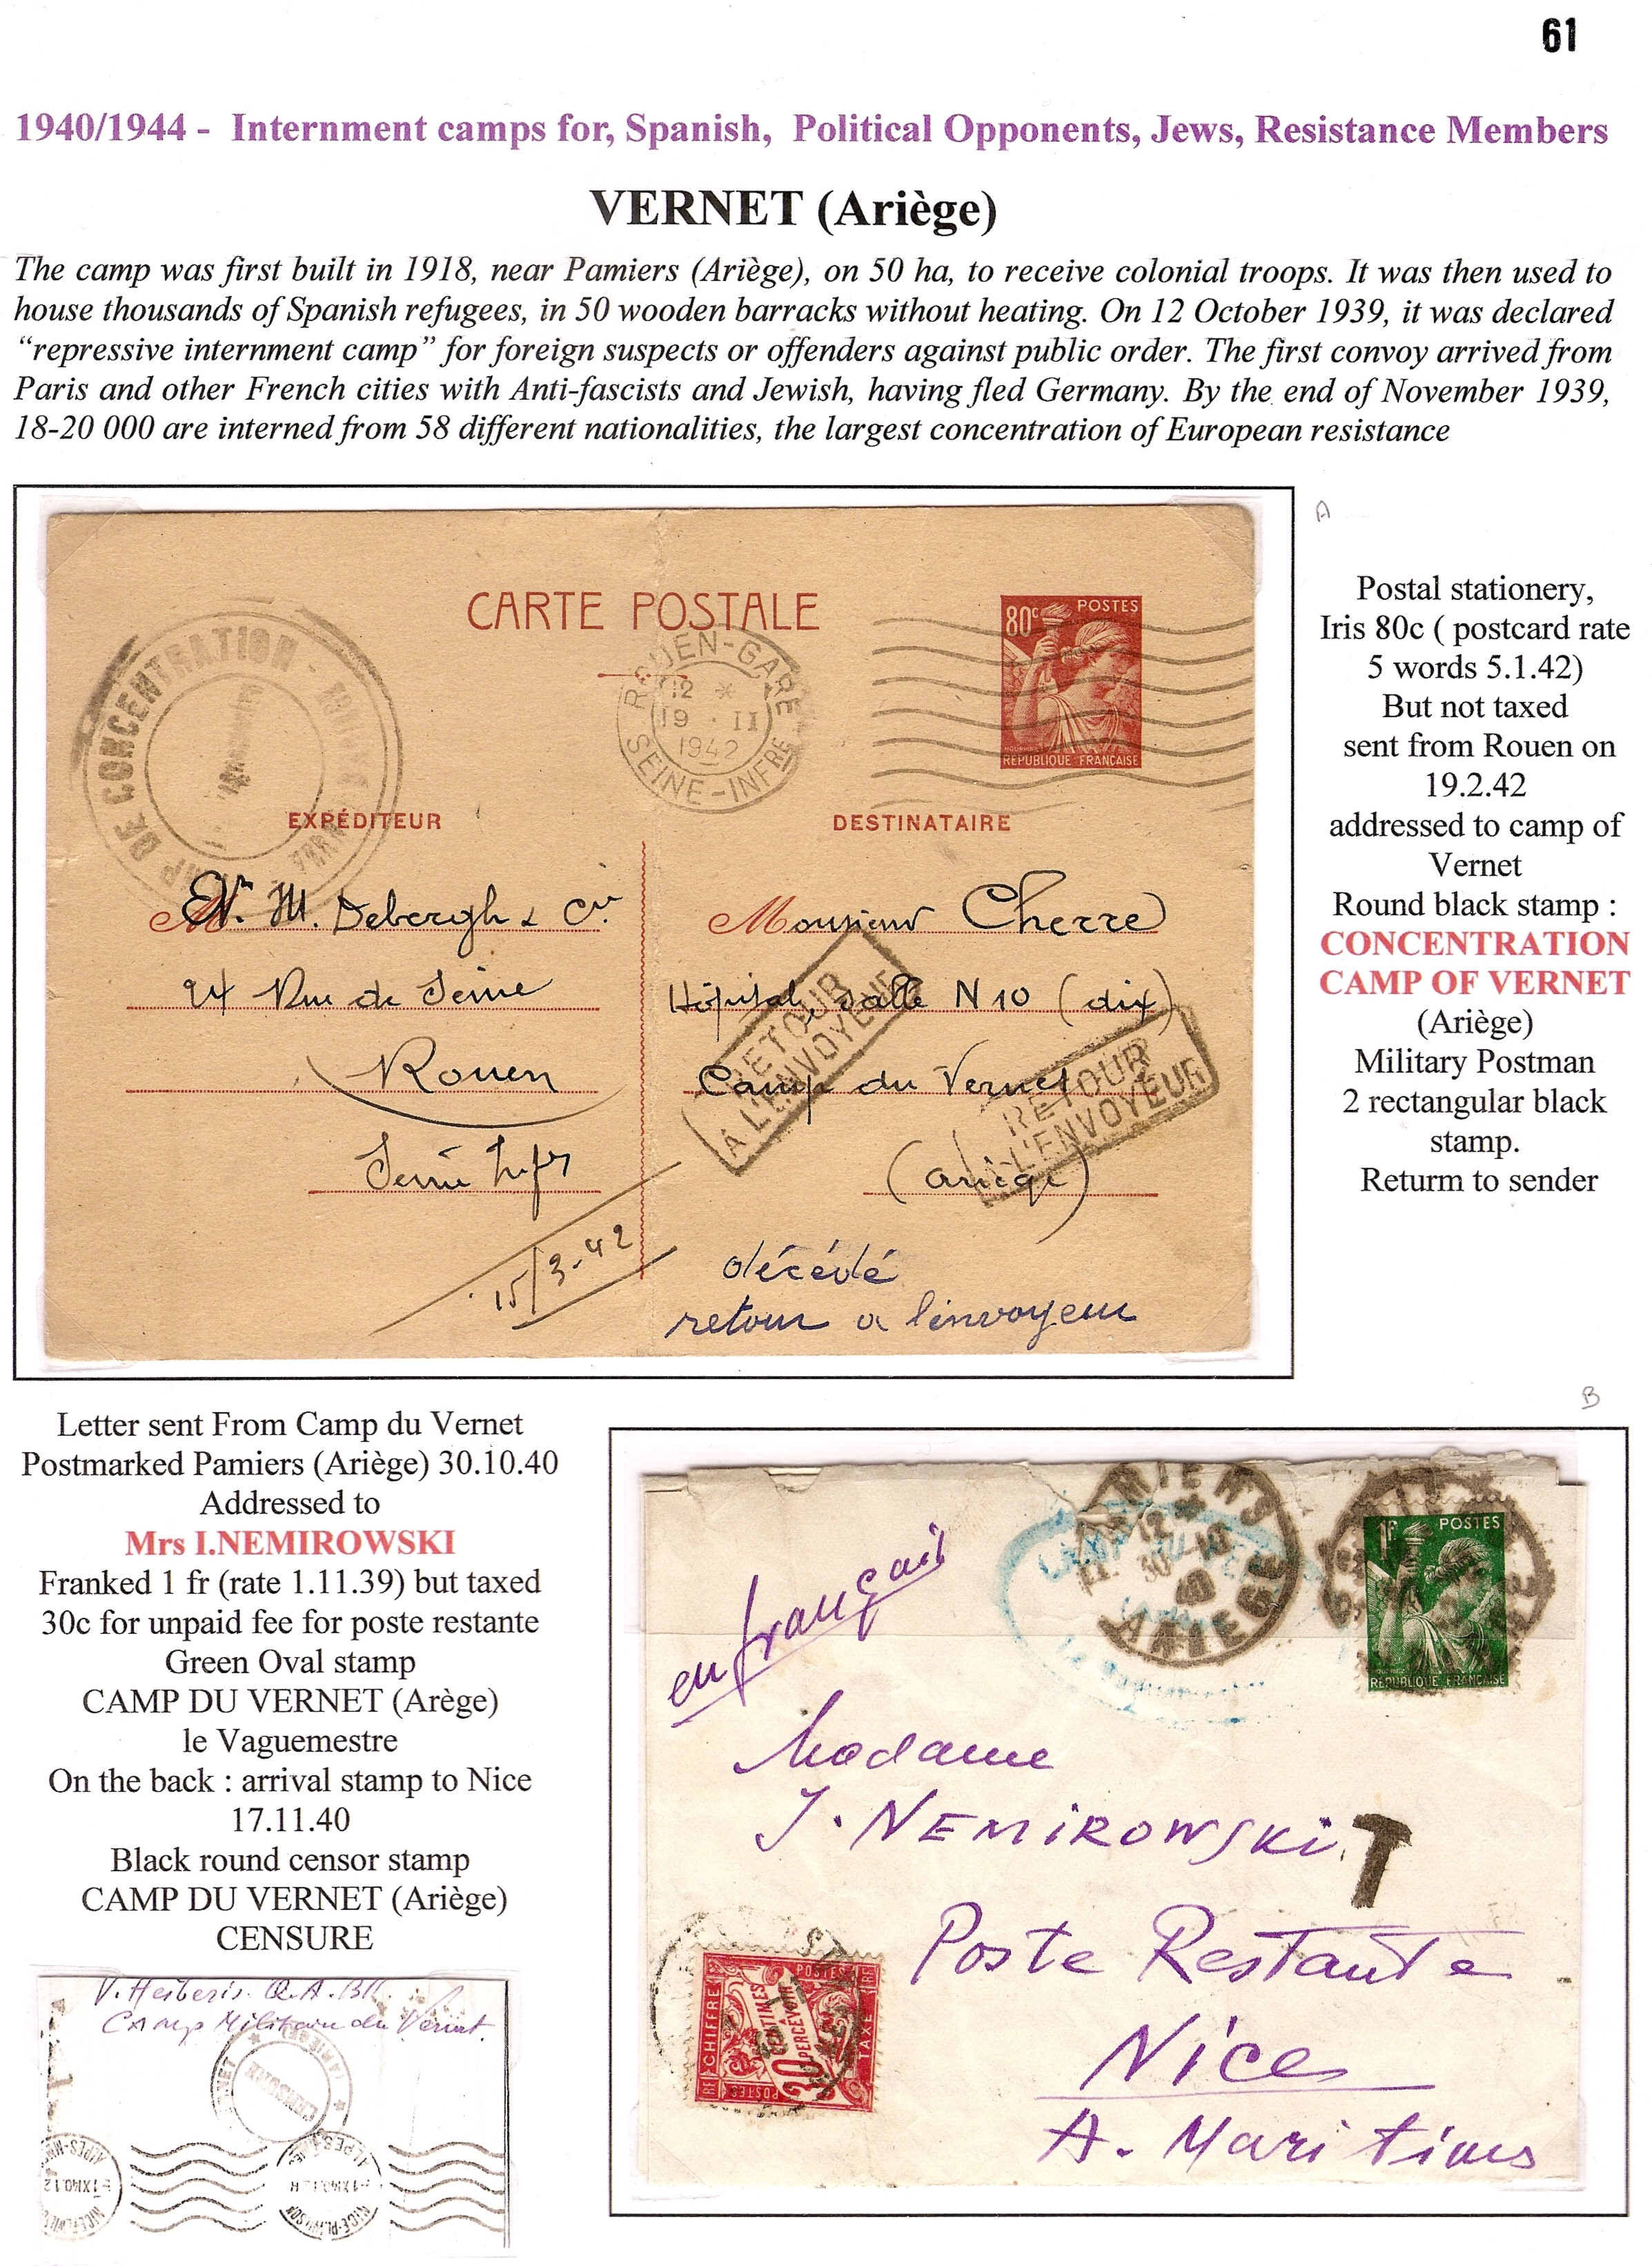 61
1940/1944 - Internment camps for, Spanish, Political Opponents, Jews, Resistance Members
VERNET (Ariège)
The camp was first built in 1918, near Pamiers (Ariège), on 50 ha, to receive colonial troops. It was then used to
house thousands of Spanish refugees, in 50 wooden barracks without heating. On 12 October 1939, it was declared
“repressive internment camp” for foreign suspects or offenders against public order. The first convoy arrived from
Paris and other French cities with Anti-fascists and Jewish, having fled Germany. By the end of November 1939,
18-20 000 are interned from 58 different nationalities, the largest concentration of European resistance
A
CARTE POSTALE
80c POSTES
REPUBLIQUE FRANÇAISE
ROUEN-GARE
12 *
19 · II
1942
SEINE-INFRE
DE CONCENTRATION -
EXPÉDITEUR
M. Debergh & Cie
94 Rue de Seine
Rouen
Seine Infre
DESTINATAIRE
Monsieur Cherre
Hôpital, Salle N 10 (dix)
Camp du Vernet
(Ariège)
RETOUR
A L'ENVOYEUR
RETOUR
A L'ENVOYEUR
15/3-42
décédé
retour a l'envoyeur
Postal stationery,
Iris 80c ( postcard rate
5 words 5.1.42)
But not taxed
sent from Rouen on
19.2.42
addressed to camp of
Vernet
Round black stamp :
CONCENTRATION
CAMP OF VERNET
(Ariège)
Military Postman
2 rectangular black
stamp.
Returm to sender
Letter sent From Camp du Vernet
Postmarked Pamiers (Ariège) 30.10.40
Addressed to
Mrs I.NEMIROWSKI
Franked 1 fr (rate 1.11.39) but taxed
30c for unpaid fee for poste restante
Green Oval stamp
CAMP DU VERNET (Arège)
le Vaguemestre
On the back : arrival stamp to Nice
17.11.40
Black round censor stamp
CAMP DU VERNET (Ariège)
CENSURE
B
en français
PAMIERS
12
30-10
40
ARIEGE
1F POSTES
REPUBLIQUE FRANÇAISE
Madame
I. NEMIROWSKI
T
Poste Restante
Nice
A. Maritims
CHIFFRE
TAXE
POSTES
30 CENTIMES
A PERCEVOIR
Camp Militaire du Vernet.
CENSURE